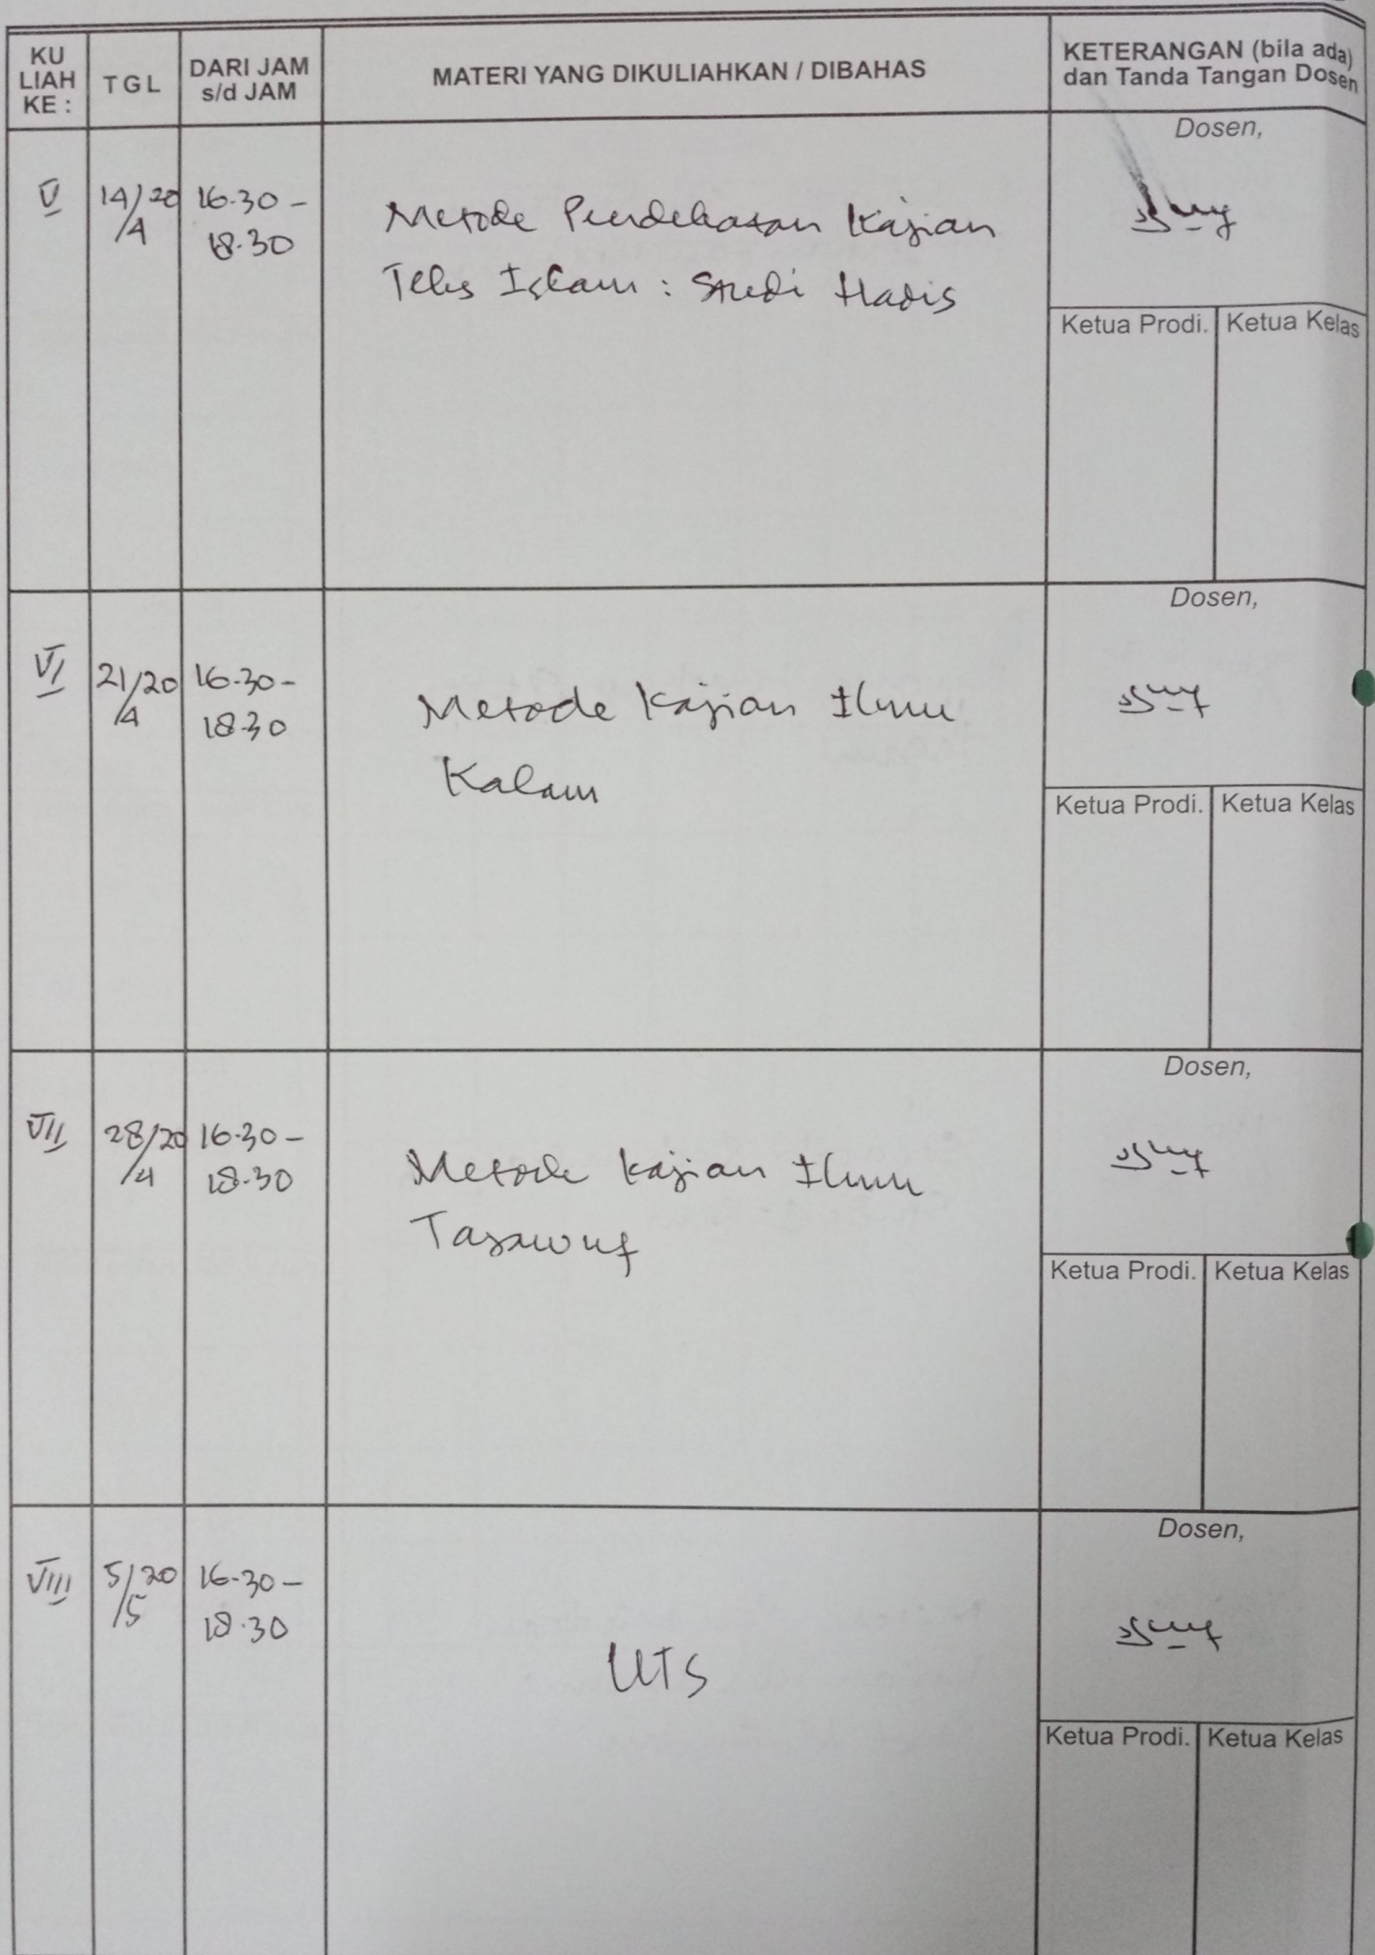 KU
LIAH
KE :
TGL
DARI JAM
s/d JAM
MATERI YANG DIKULIAHKAN / DIBAHAS
KETERANGAN (bila ada)
dan Tanda Tangan Dosen
V
14/20
/4
16.30 -
18.30
Metode Pendekatan Kajian
Teks Islam : Studi Hadis
Dosen,
Ketua Prodi. Ketua Kelas
VI
21/20
/4
16.30 -
18.30
Metode Kajian Ilmu
Kalam
Dosen,
Ketua Prodi. Ketua Kelas
VII
28/20
/4
16.30 -
18.30
Metode Kajian Ilmu
Tasawuf
Dosen,
Ketua Prodi. Ketua Kelas
VIII
5/20
/5
16.30 -
18.30
UTS
Dosen,
Ketua Prodi. Ketua Kelas